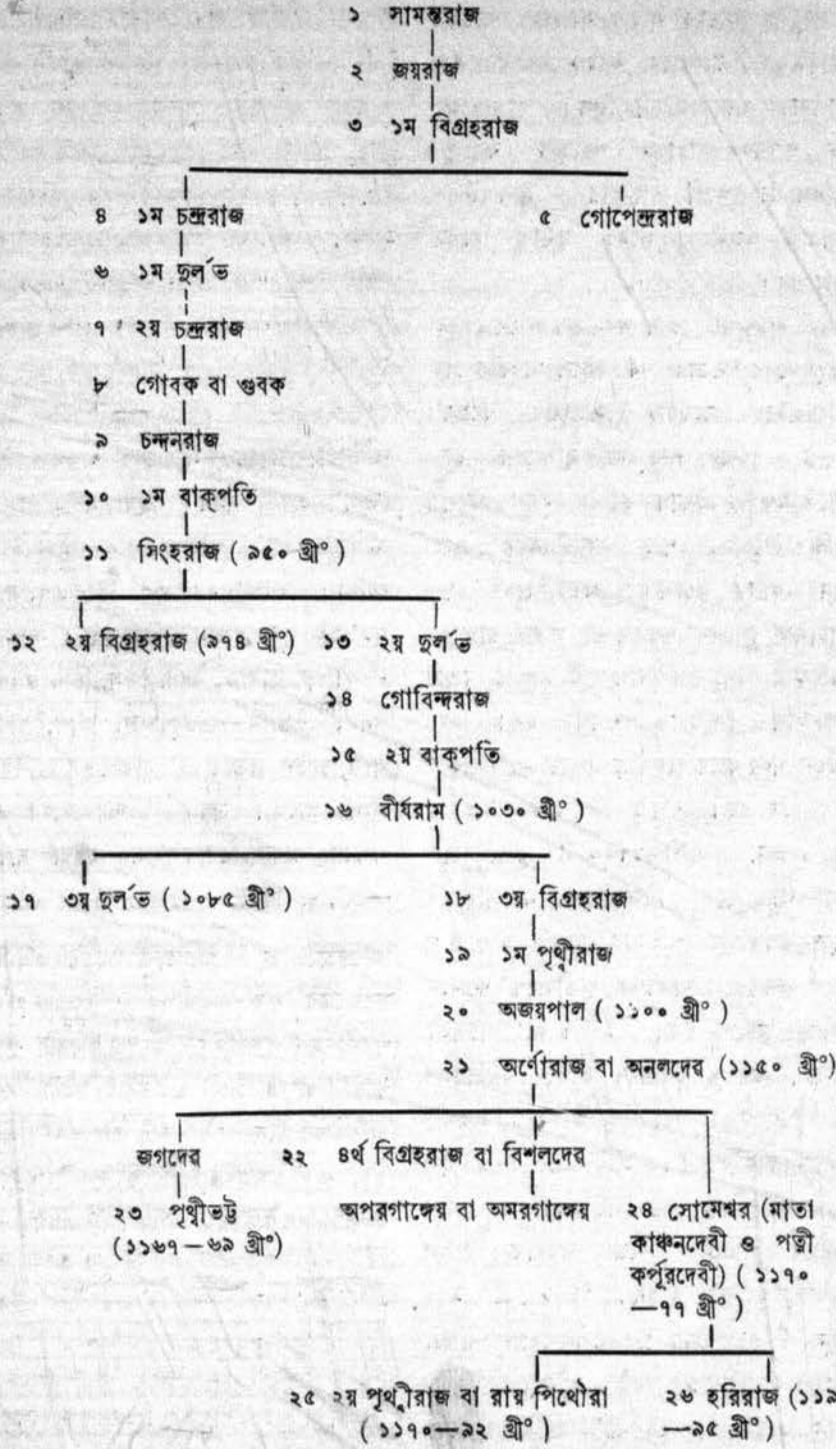 ১ সামন্তরাজ
২ জয়রাজ
৩ ১ম বিগ্রহরাজ
৪ ১ম চন্দ্ররাজ ৫ গোপেন্দ্ররাজ
৬ ১ম দুর্লভ
৭ ২য় চন্দ্ররাজ
৮ গোবক বা গুবক
৯ চন্দনরাজ
১০ ১ম বাক্‌পতি
১১ সিংহরাজ ( ৯৫০ খ্রী° )
১২ ২য় বিগ্রহরাজ (৯৭৪ খ্রী°) ১৩ ২য় দুর্লভ
১৪ গোবিন্দরাজ
১৫ ২য় বাক্‌পতি
১৬ বীর্যরাম ( ১০৩০ খ্রী° )
১৭ ৩য় দুর্লভ ( ১০৮৫ খ্রী° ) ১৮ ৩য় বিগ্রহরাজ
১৯ ১ম পৃথ্বীরাজ
২০ অজয়পাল ( ১১০০ খ্রী° )
২১ অর্ণোরাজ বা অনলদেব (১১৫০ খ্রী°)
জগদেব ২২ ৪র্থ বিগ্রহরাজ বা বিশলদেব
২৩ পৃথ্বীভট্ট অপরগাঙ্গেয় বা অমরগাঙ্গেয় ২৪ সোমেশ্বর (মাতা
(১১৬৭—৬৯ খ্রী°) কাঞ্চনদেবী ও পত্নী
কর্পূরদেবী) ( ১১৭০
—৭৭ খ্রী° )
২৫ ২য় পৃথ্বীরাজ বা রায় পিথৌরা ২৬ হরিরাজ (১১৯
( ১১৭০—৯২ খ্রী° ) —৯৫ খ্রী°)